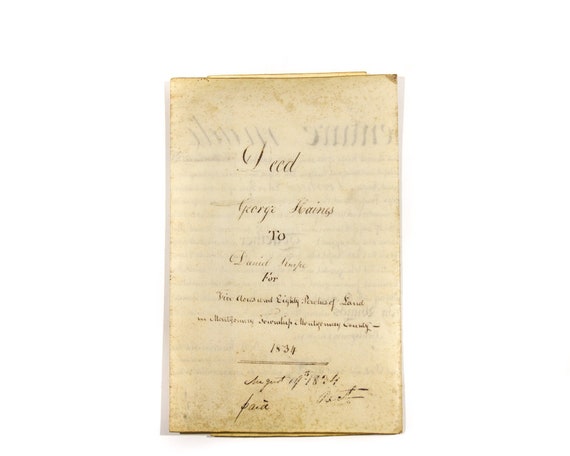 Deed
George Haines
To
Daniel
For
Acres and Eighty Perches of Land
in Montgomery Township Montgomery County –
1834
August 19th 1834
paid